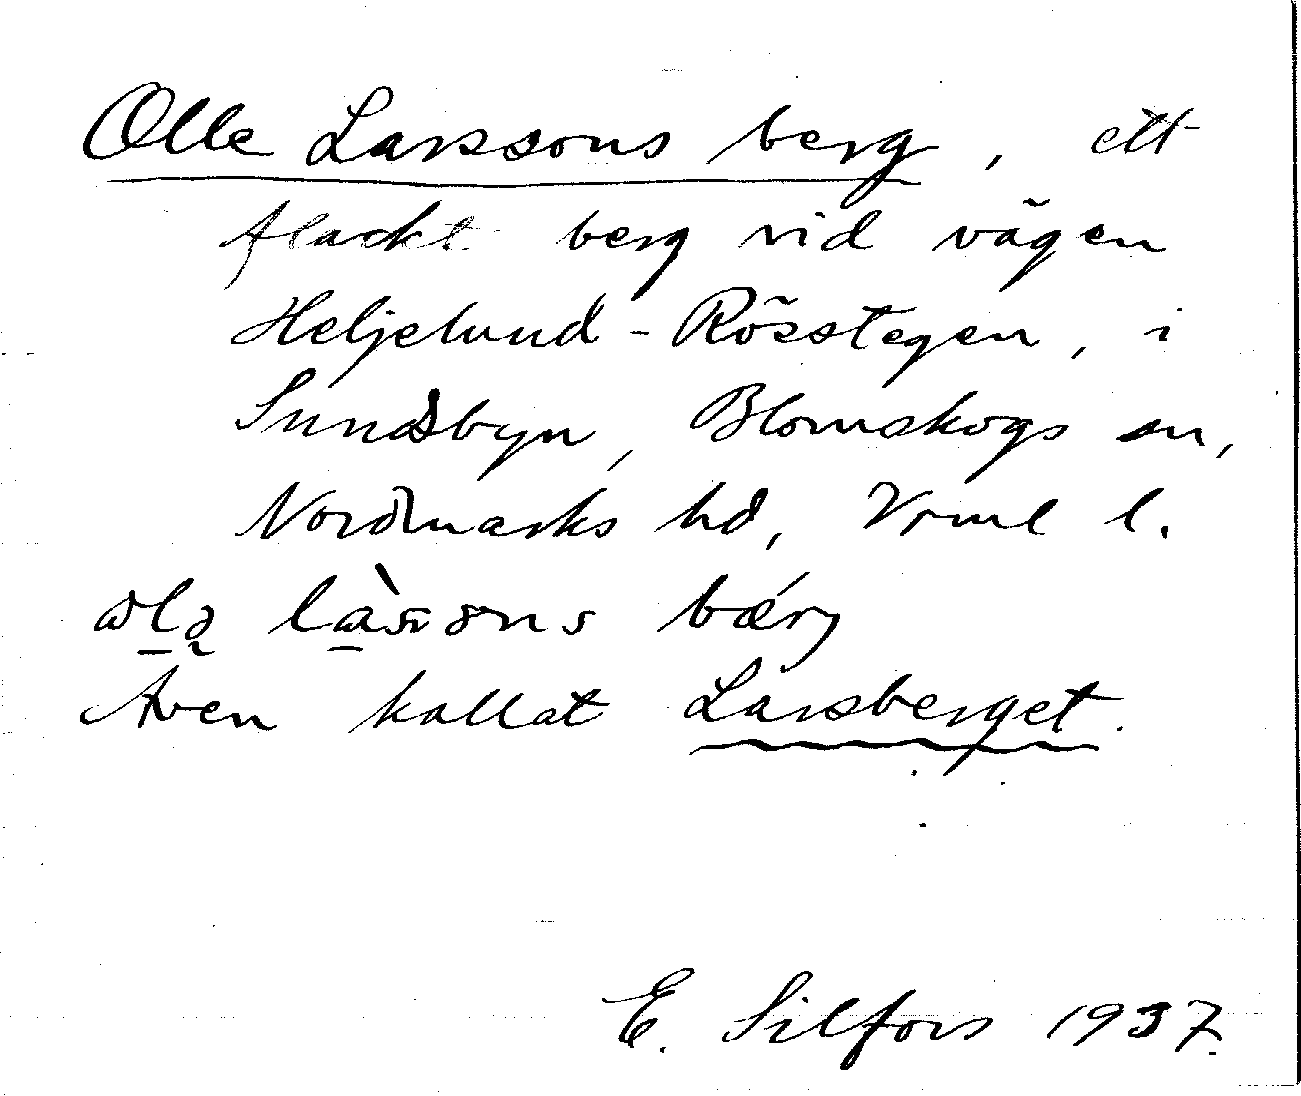 Olle Larssons berg, ett
flackt berg vid vägen
Heljelund - Rösstegen, i
Sundsbyn, Blomskogs sn,
Nordmarks hd, Vrml l.
Även kallat Larsberget.
E. Silfors 1937.